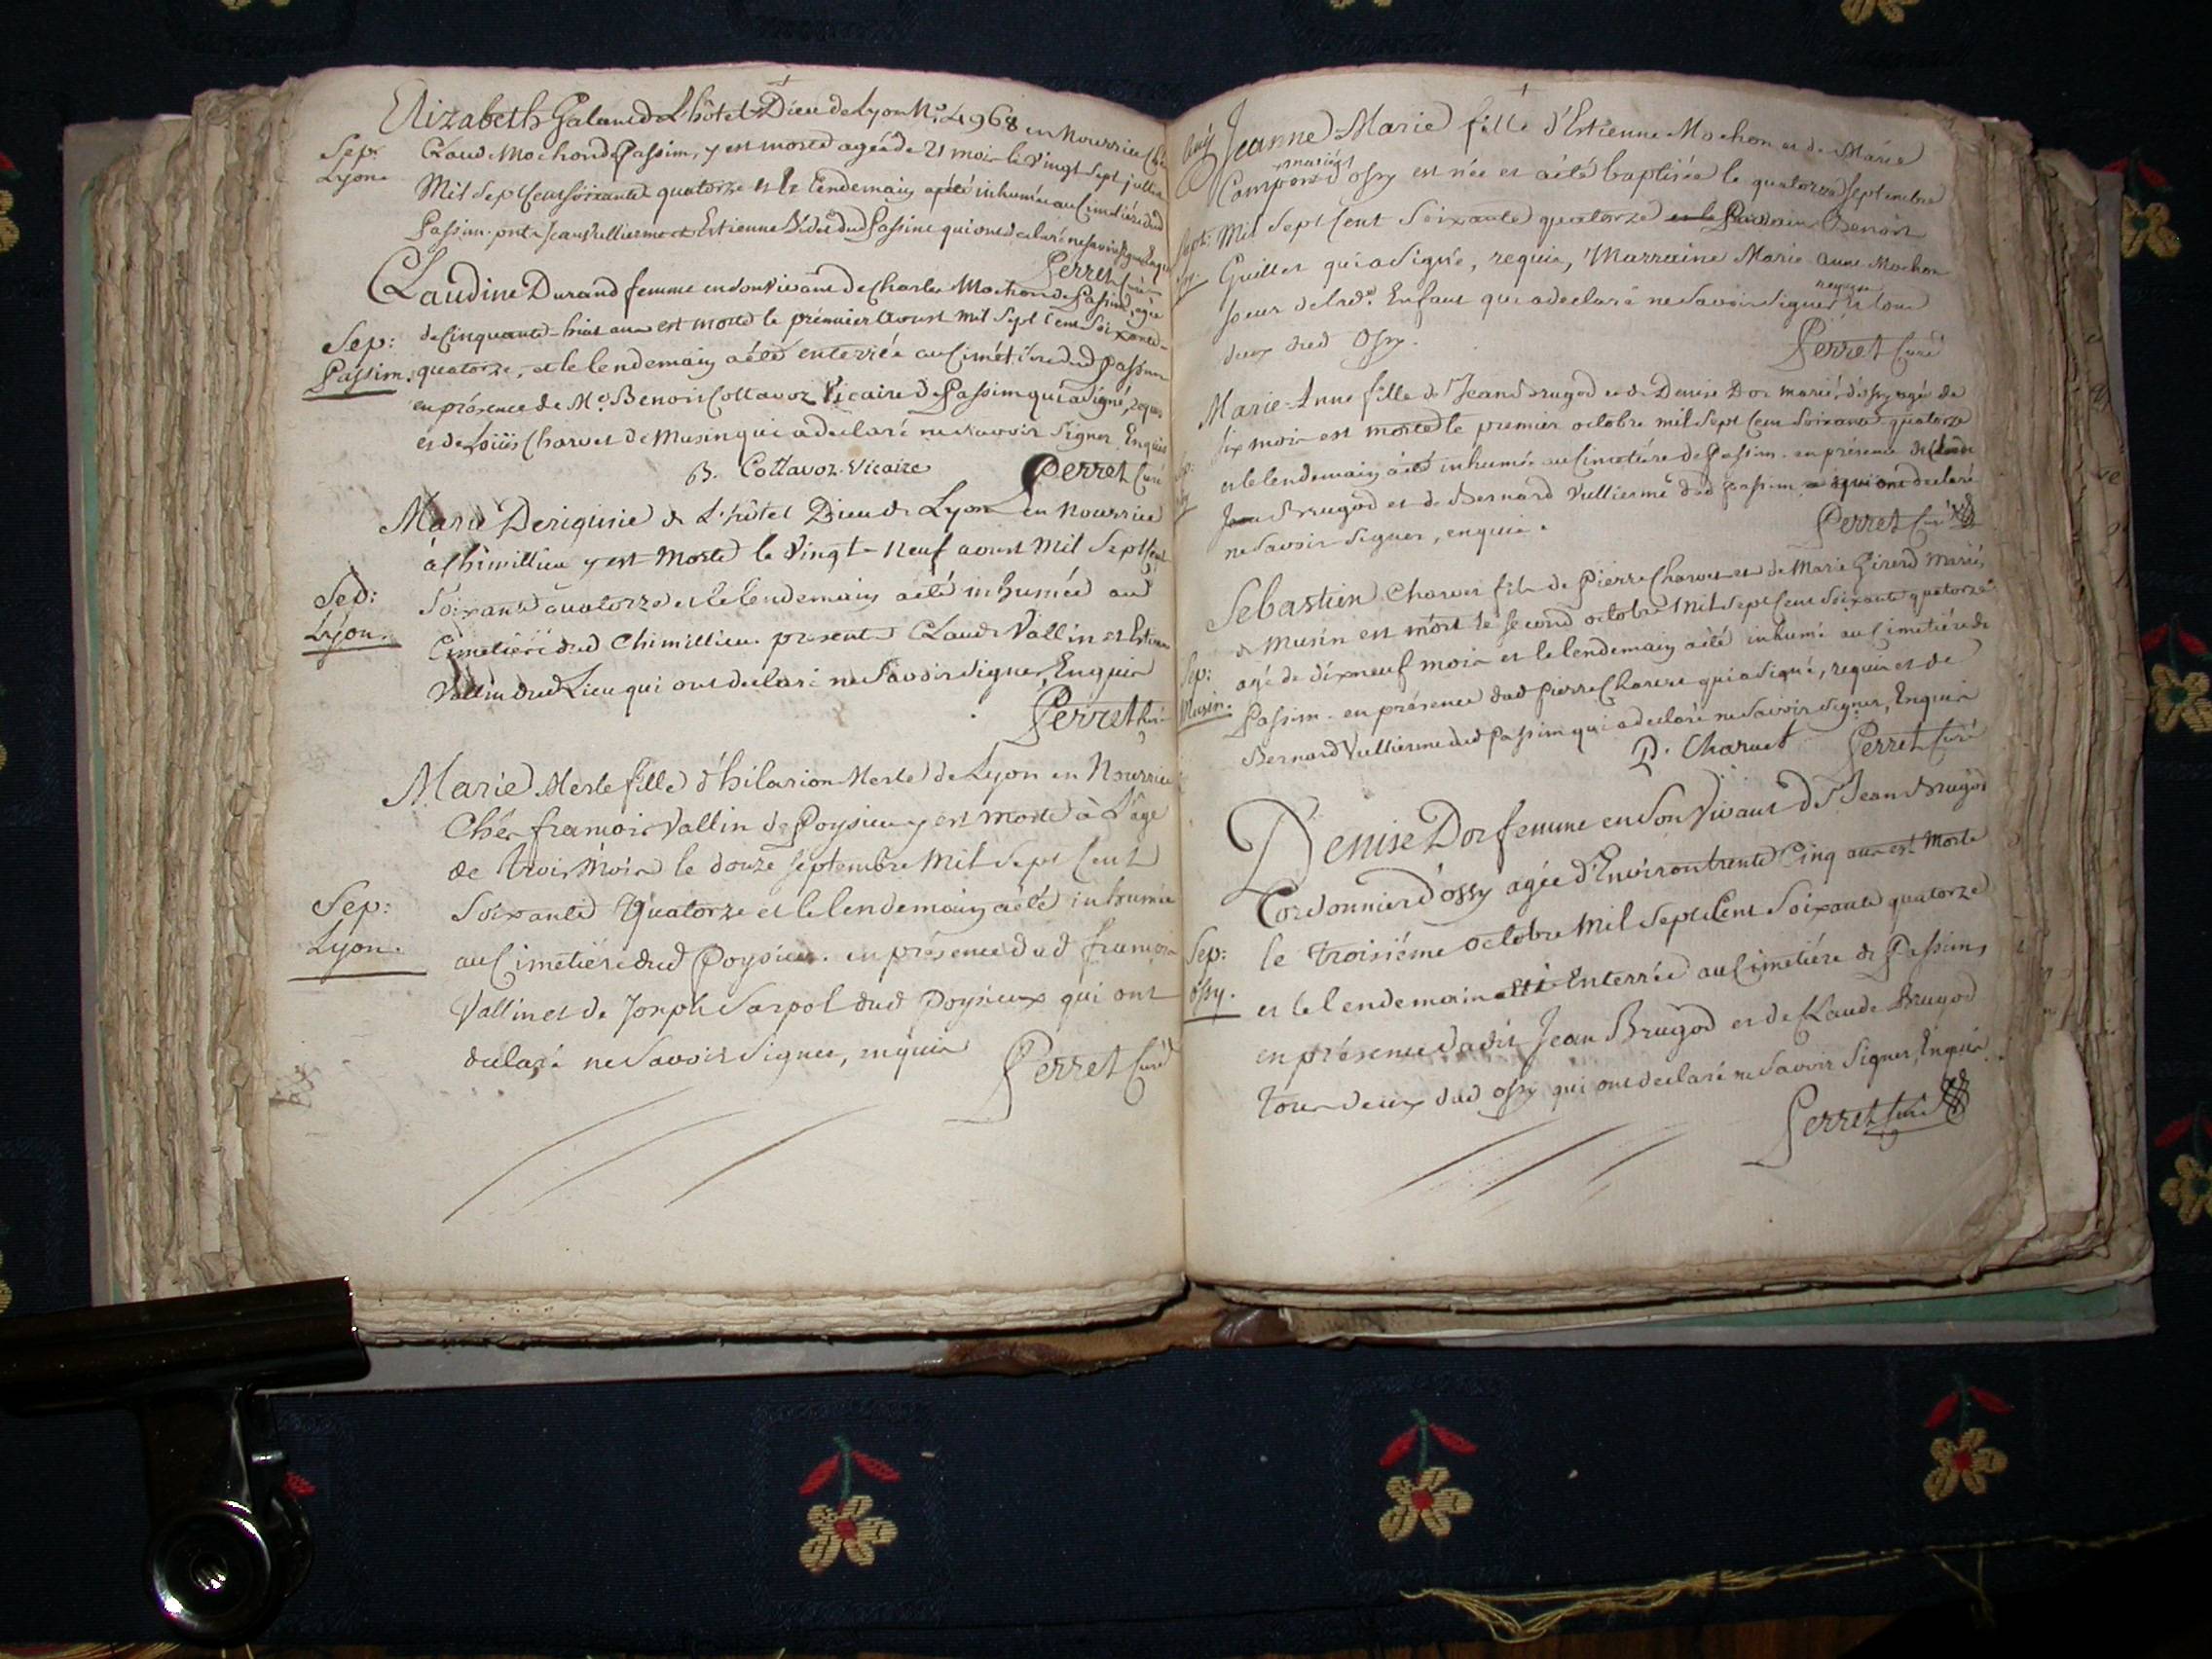 Elizabeth Galand de L'hôtel Dieu de Lyon N.° 4968 en Nourrice Chés
Sep:
Lyon.
Claude Mochon de Passim, y est morte agée de 21 mois le vingt sept juillet
Mil Sept Cent Soixante quatorze et le lendemain a été inhumée au Cimetière dud
Passim. pnts Jean Vullierme et Estienne dud Passim qui ont declaré ne savoir signer Enquis
Perret Curé
Claudine Durand femme en son Vivant de Charles Mochon de Passim, agée
de Cinquante-huit ans est morte le prémier Aoust mil Sept Cent Soixante-
Sep:
Passim.
quatorze, et le lendemain a été enterrée au Cimétière dud Passim
en présence de M.e Benoit Cottavoz Vicaire de Passim qui a Signé, requis
et de Loüis Charvet de Musin qui a declaré ne savoir Signer Enquis
B. Cottavoz. Vicaire Perret Curé
Marie Deriginie de L'hôtel Dieu de Lyon en Nourrice
à Chimillieu y est Morte le Vingt-Neuf aoust Mil Sept Cent
Sep:
Lyon.
Soixante quatorze et le lendemain a été inhumée au
Cimetière dud Chimillieu. présents Claude Vallin et Estienne
Vallin dud Lieu qui ont declaré ne Savoir Signer, Enquis
Perret Curé
Marie Merle fille d'hilarion Merle de Lyon en Nourrice
Chés francois Vallin de Poysieu y est morte à L'âge
de trois Mois le douze Septembre Mil Sept Cent
Sep:
Lyon.
Soixante Quatorze et le lendemain a été inhumée
au Cimetière dud Poysieu. en présence dud francois
Vallin et de Joseph Sarpol dud Poysieux qui ont
declaré ne Savoir Signer, enquis
Perret Curé
Jeanne-Marie fille d'Estienne Mochon et de Marie
mariés
d'Ossy est née et a été baptisée le quatorze Septembre
Mil Sept Cent Soixante quatorze et le Parrain Benoit
Guillet qui a Signé, requis, Marraine Marie Anne Mochon
soeur de lad.e Enfant qui a declaré ne Savoir Signer requise Et tous
deux dud Ossy.
Perret Curé
Marie-Anne fille de Jean Brugod et de Denise Dor mariés d'ossy agée de
six mois est morte le premier octobre mil Sept Cent Soixante quatorze
et le lendemain a été inhumée au Cimetière de Passim. en présence de Claude
Brugod et de Bernard Vullierme dud passim qui ont declaré
ne Savoir Signer, enquis.
Perret Curé
Sebastien Charvet fils de Pierre Charvet et de Marie Girerd Mariés,
de Musin est mort le Second octobre Mil Sept Cent Soixante quatorze
Sep:
Musin.
agé de dixneuf mois et le lendemain a été inhumé au Cimetière de
Passim. en présence dud Pierre Charvet qui a Signé, requis et de
Bernard Vullierme dud Passim qui a declaré ne Savoir Signer, Enquis
P. Charvet Perret Curé
Denise Dor femme en Son Vivant de Jean Brugod
Cordonnier d'ossy agée d'Environ trente Cinq ans est Morte
Sep:
ossy.
le troisiéme Octobre Mil Sept Cent Soixante quatorze
et le lendemain a été Enterrée au Cimetière de Passim,
en présence dudit Jean Brugod et de Claude Brugod
tous deux dud ossy qui ont declaré ne Savoir Signer, Enquis
Perret Curé